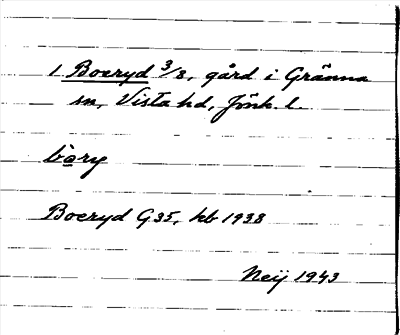 1 Boeryd 3/8, gård i Gränna
sn, Vista hd, Jönk. l.
bo̱ry
Boeryd G35, hb 1938
Neij 1943